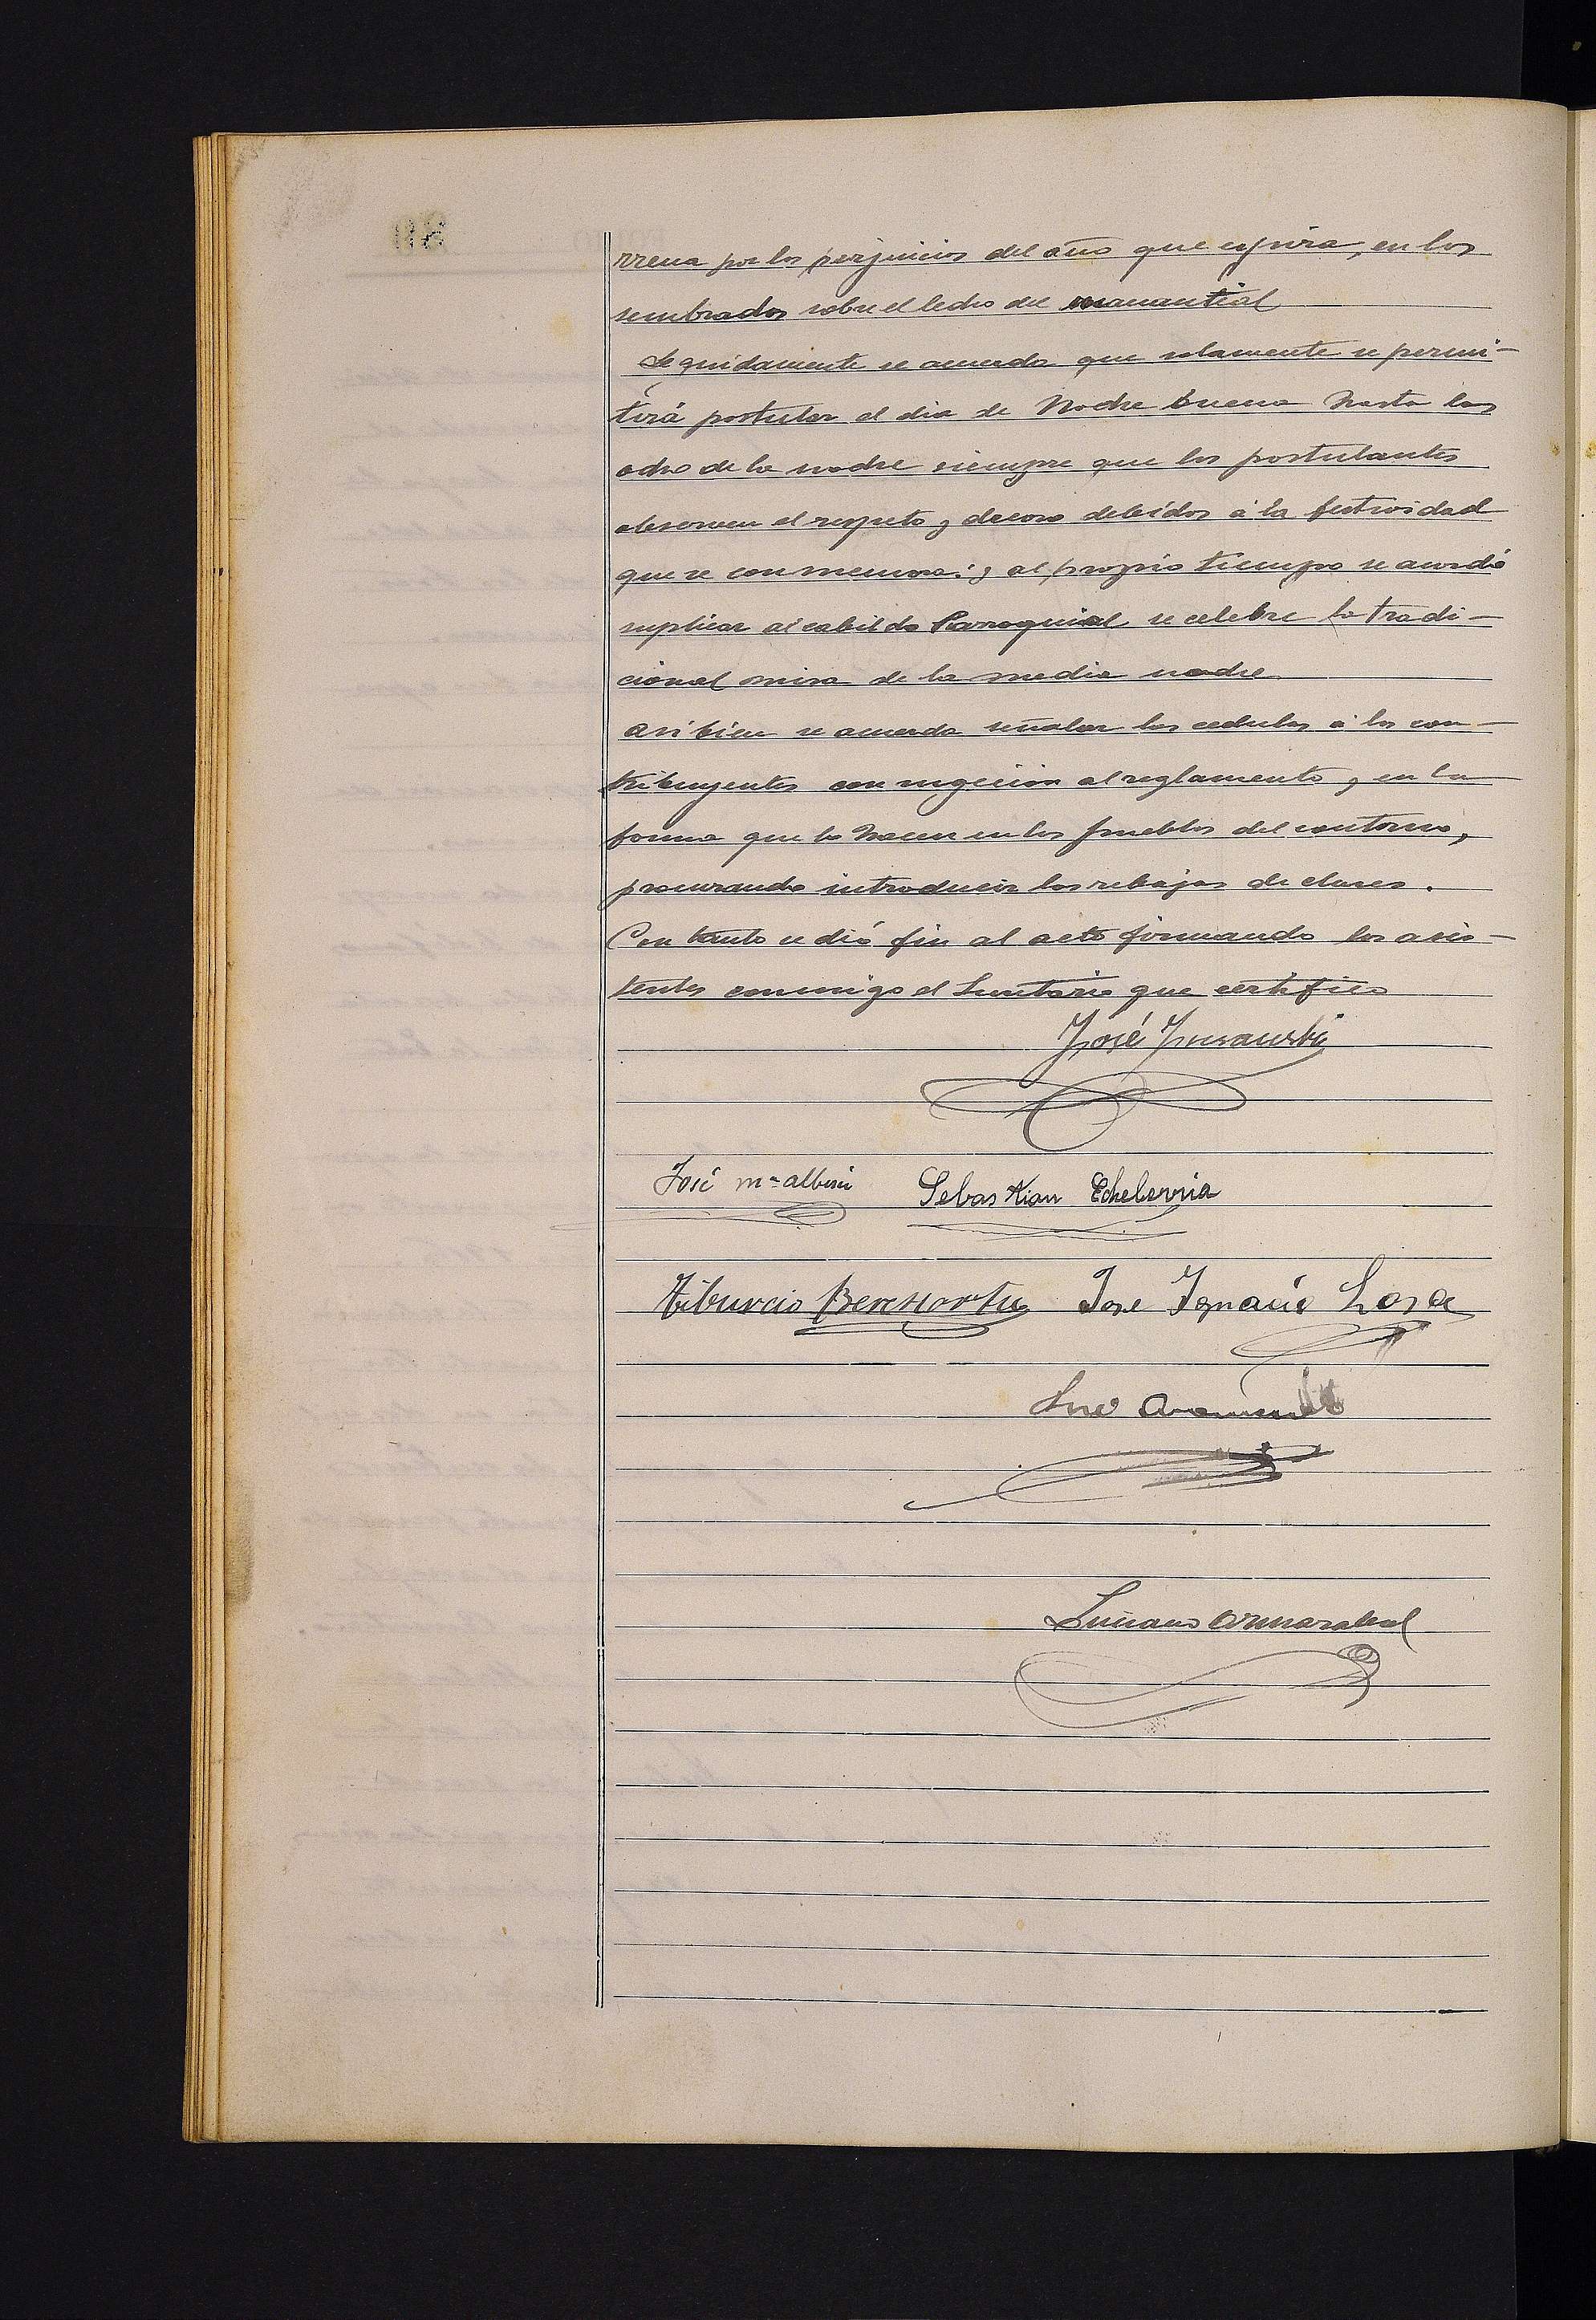 rrena por los perjuicios del año que espira, en los
sembrados sobre el lecho del manantial
Seguidamente se acuerda que solamente se permi-
tirá postular el dia de Noche buena hasta las
ocho de la noche siempre que los postulantes
observen el respeto y decoro debidos á la festividad
que se conmemora: y al propio tiempo se acordó
suplicar al cabildo Parroquial se celebre la tradi-
cional misa de la media noche.
Asi bien se acuerda señalar las cedulas á los con-
tribuyentes con sugecion al reglamento y en la
forma que lo hacen en los pueblos del contorno,
procurando introducir las rebajas de clases.
Con tanto se dió fin al acto firmando los asis-
tentes conmigo el Secretario que certifico
José
José Mª Albisu Sebastian Echeberria
Tiburcio Berasartu Jose Ignacio Lasa
José
Luciano Ormazabal